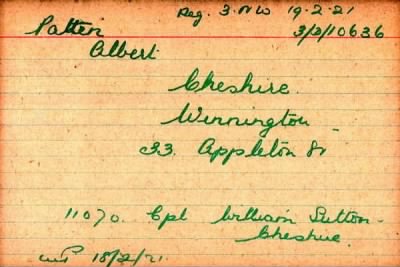 Reg. 3. NW 19-2-21
Patten 3/2/10636
Albert
Cheshire.
Winnington
33. Appleton St
11070. Cpl William Sutton -
Cheshire.
18/2/21.